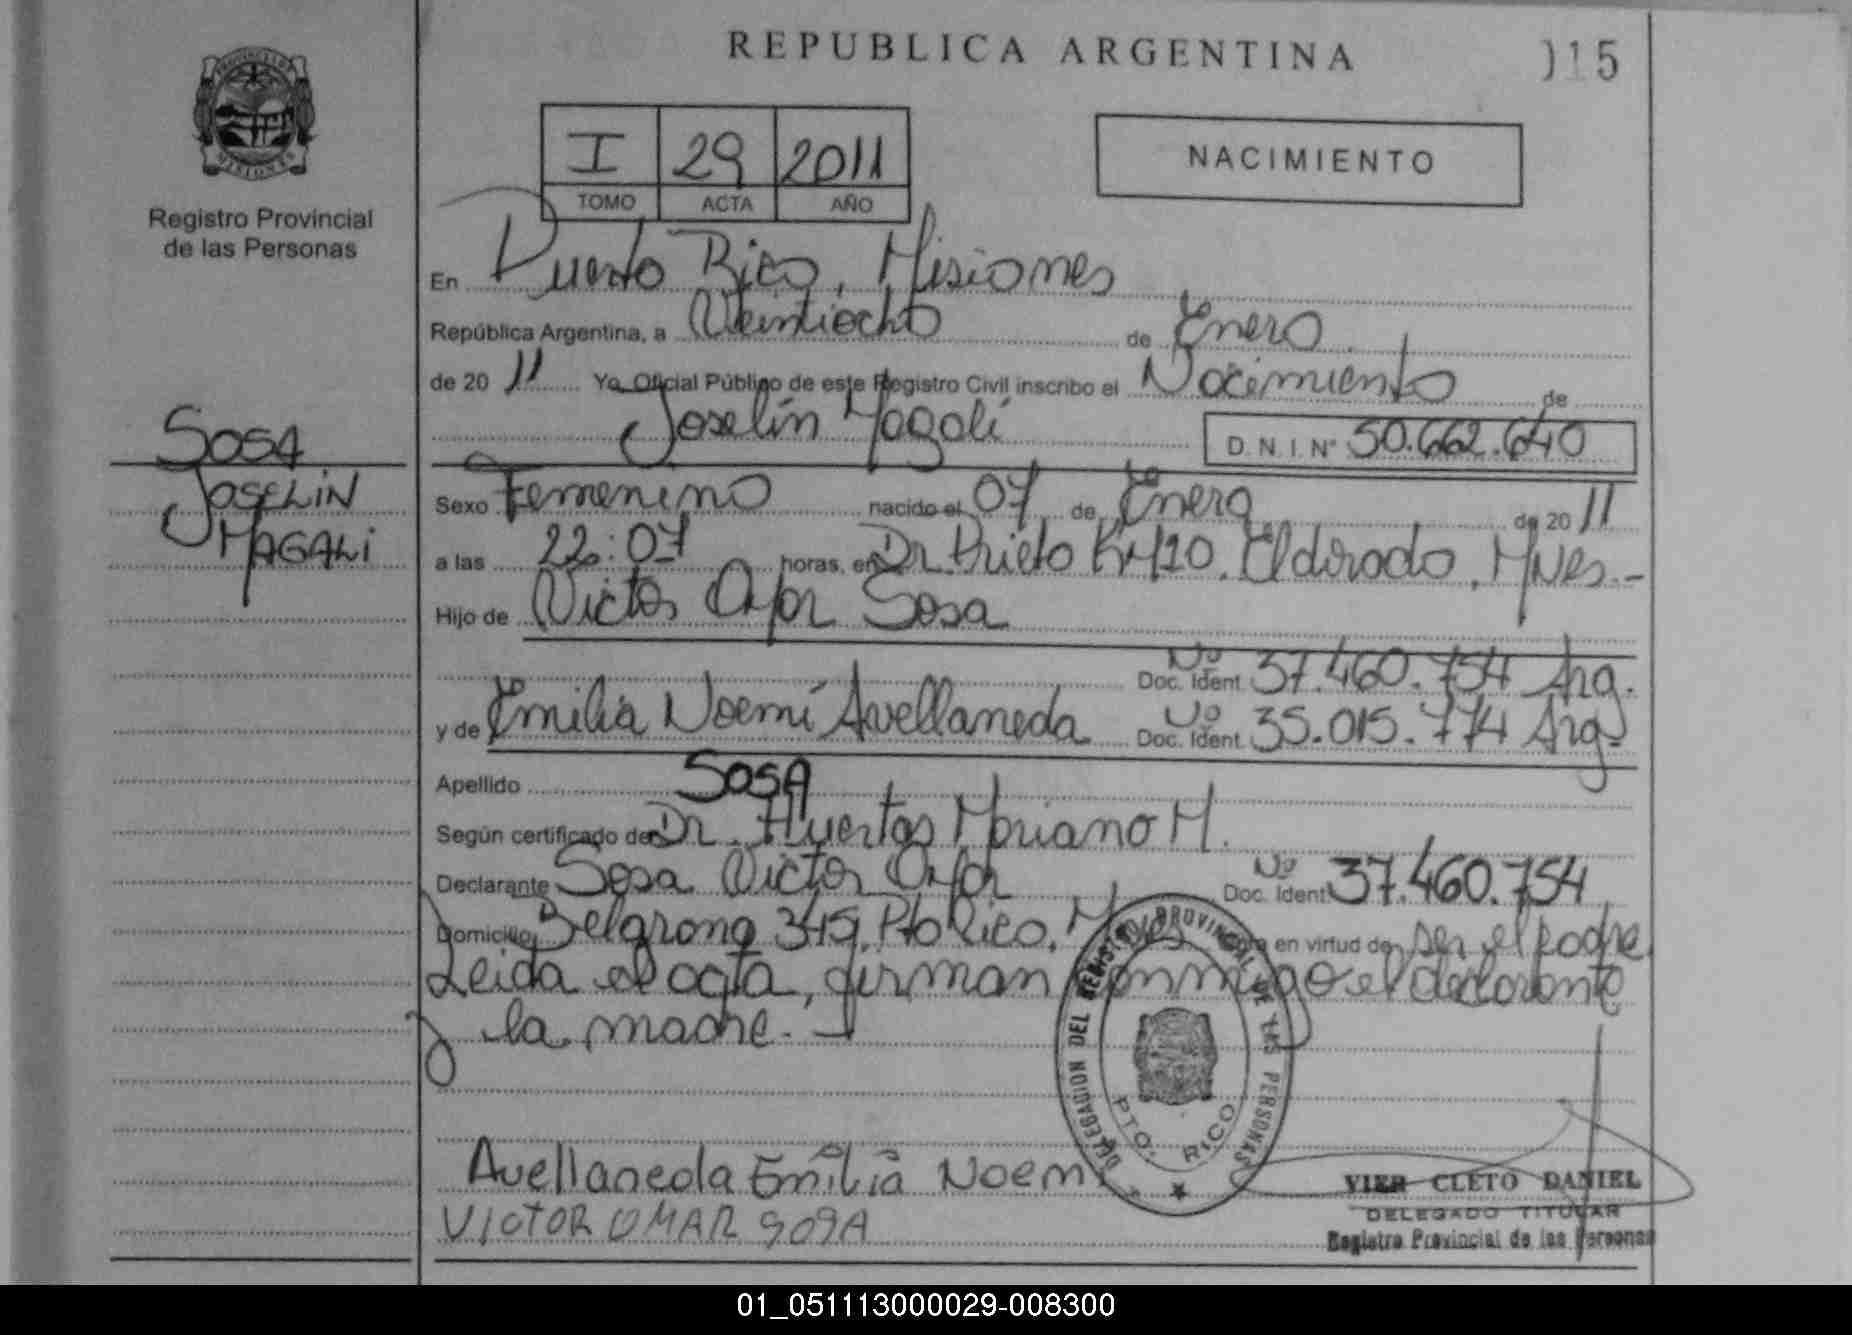 REPUBLICA ARGENTINA
)15
PROVINCIA DE MISIONES
Registro Provincial
de las Personas
I 29 2011
TOMO ACTA AÑO
NACIMIENTO
En Puerto Rico, Misiones
República Argentina, a Veintiocho de Enero
de 20 11 Yo Oficial Público de este Registro Civil inscribo el Nacimiento de
Joselín Magalí D.N.I. Nº 50.662.640
SOSA
JOSELIN
MAGALi
Sexo Femenino nacido el 07 de Enero de 20 11
a las 22:07 horas, en Dr. Prieto Km 10, Eldorado, Mnes.-
Hijo de Victor Omar Sosa
Nº
Doc. Ident. 37.460.754 Arg.
y de Emilia Noemí Avellaneda Nº Doc. Ident. 35.015.774 Arg.
Apellido SOSA
Según certificado de Dr. Huertas Mariano M.
Declarante Sosa Victor Omar Nº Doc. Ident. 37.460.754
Domicilio Belgrano 345, Pto Rico, en virtud de ser el padre
Leida el acta, firman conmigo el declarante
y la madre.
DELEGACION DEL REGISTRO PROVINCIAL DE LAS PERSONAS
PTO. RICO
Avellaneda Emilia Noemi
VICTOR OMAR SOSA
VIER CLETO DANIEL
DELEGADO TITULAR
Registro Provincial de las Personas
01_051113000029-008300